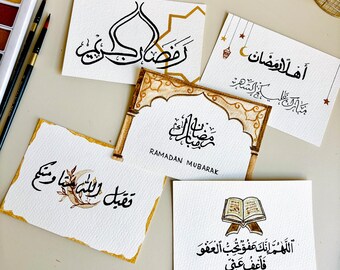 رمضان الكريم
أهلا رمضان
رمضان مبارك
RAMADAN MUBARAK
تقبل الله منا ومنكم
اللهم إنك عفو تحب العفو
فاعف عني